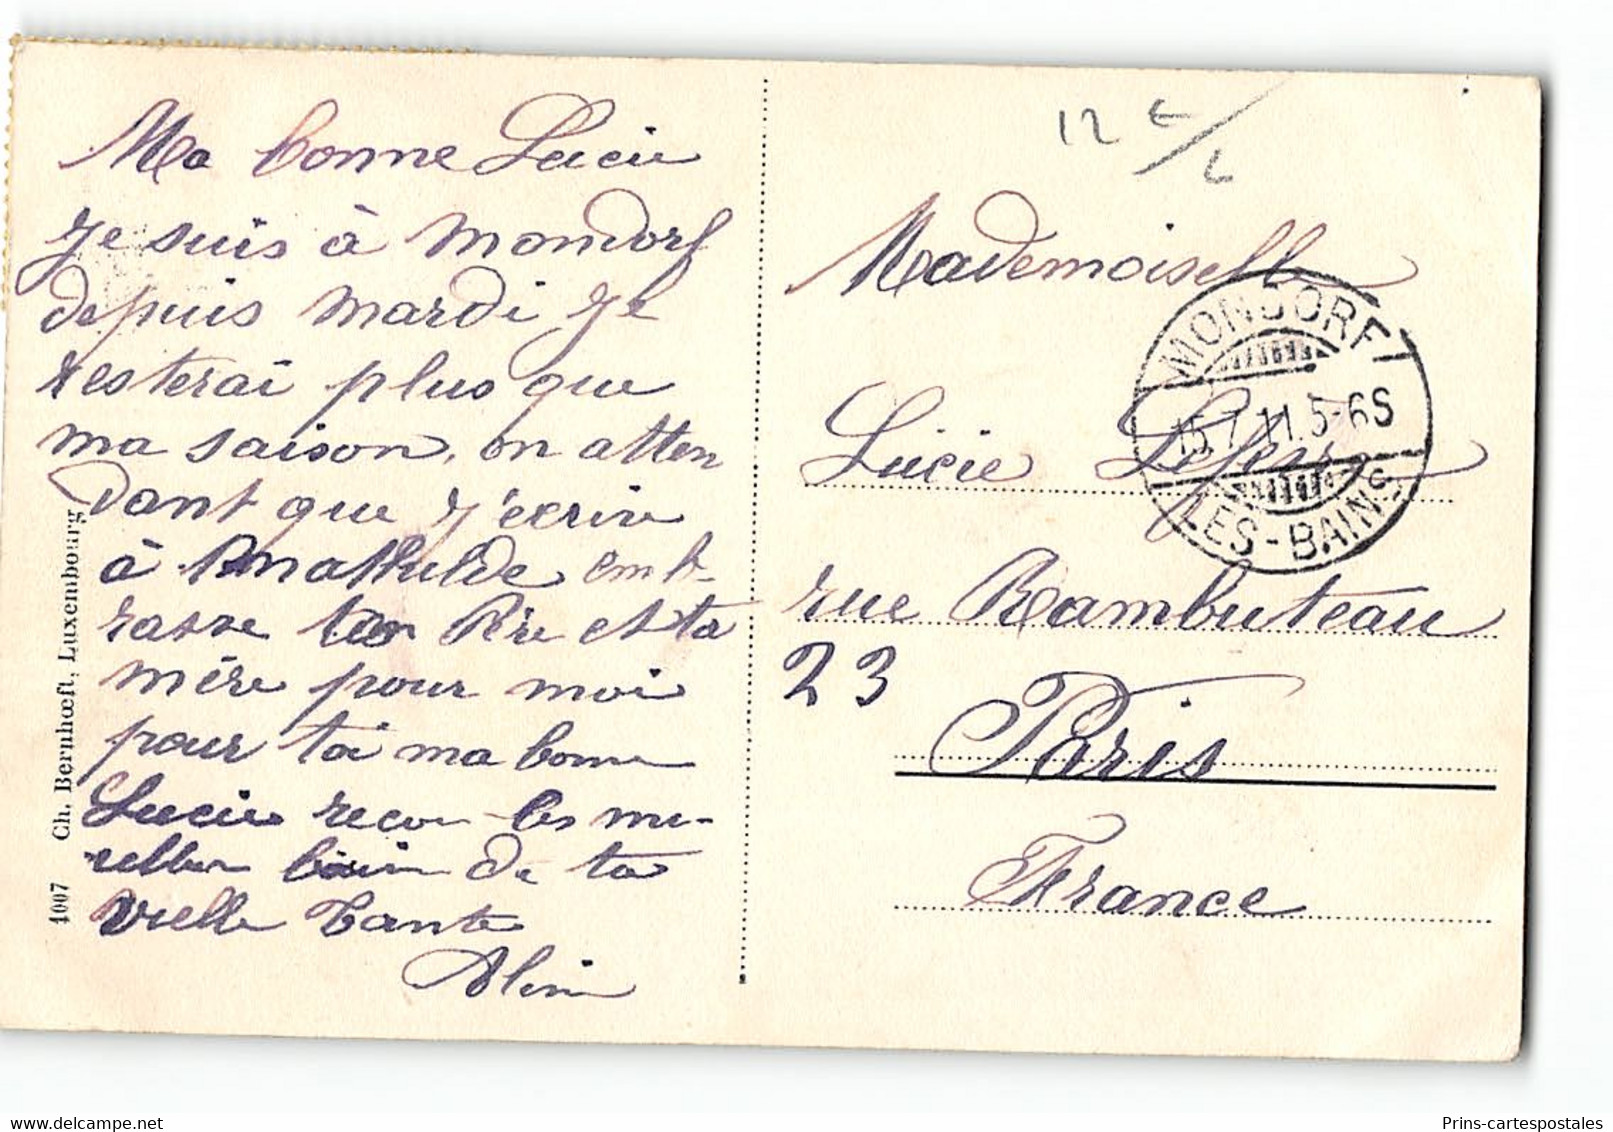 Ma bonne Lucie
Je suis à Mondorf
depuis mardi Je
resterai plus que
ma saison, en atten
dant que j'écrive
à Mathilde emb-
rasse ton Père et ta
mère pour moi
pour toi ma bonne
Lucie reçoi les mei-
de ta
vielle Tante
Alin
4007 Ch. Bernhœft, Luxembourg
12 €/6
Mademoiselle
Lucie
rue Rambuteau
23
Paris
France
MONDORF
15.7.11.5-6S
LES-BAINS
Prins-cartespostales